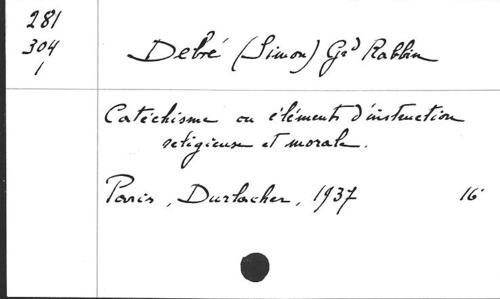 281
304
1
Debré (Simon) Gd Rabbin
Catéchisme ou éléments d'instruction
religieuse et morale.
Paris, Durlacher, 1937 16